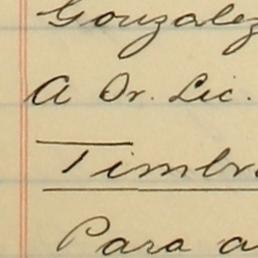 Gonzalez
A Dr. Lic.
Timbr
Para a